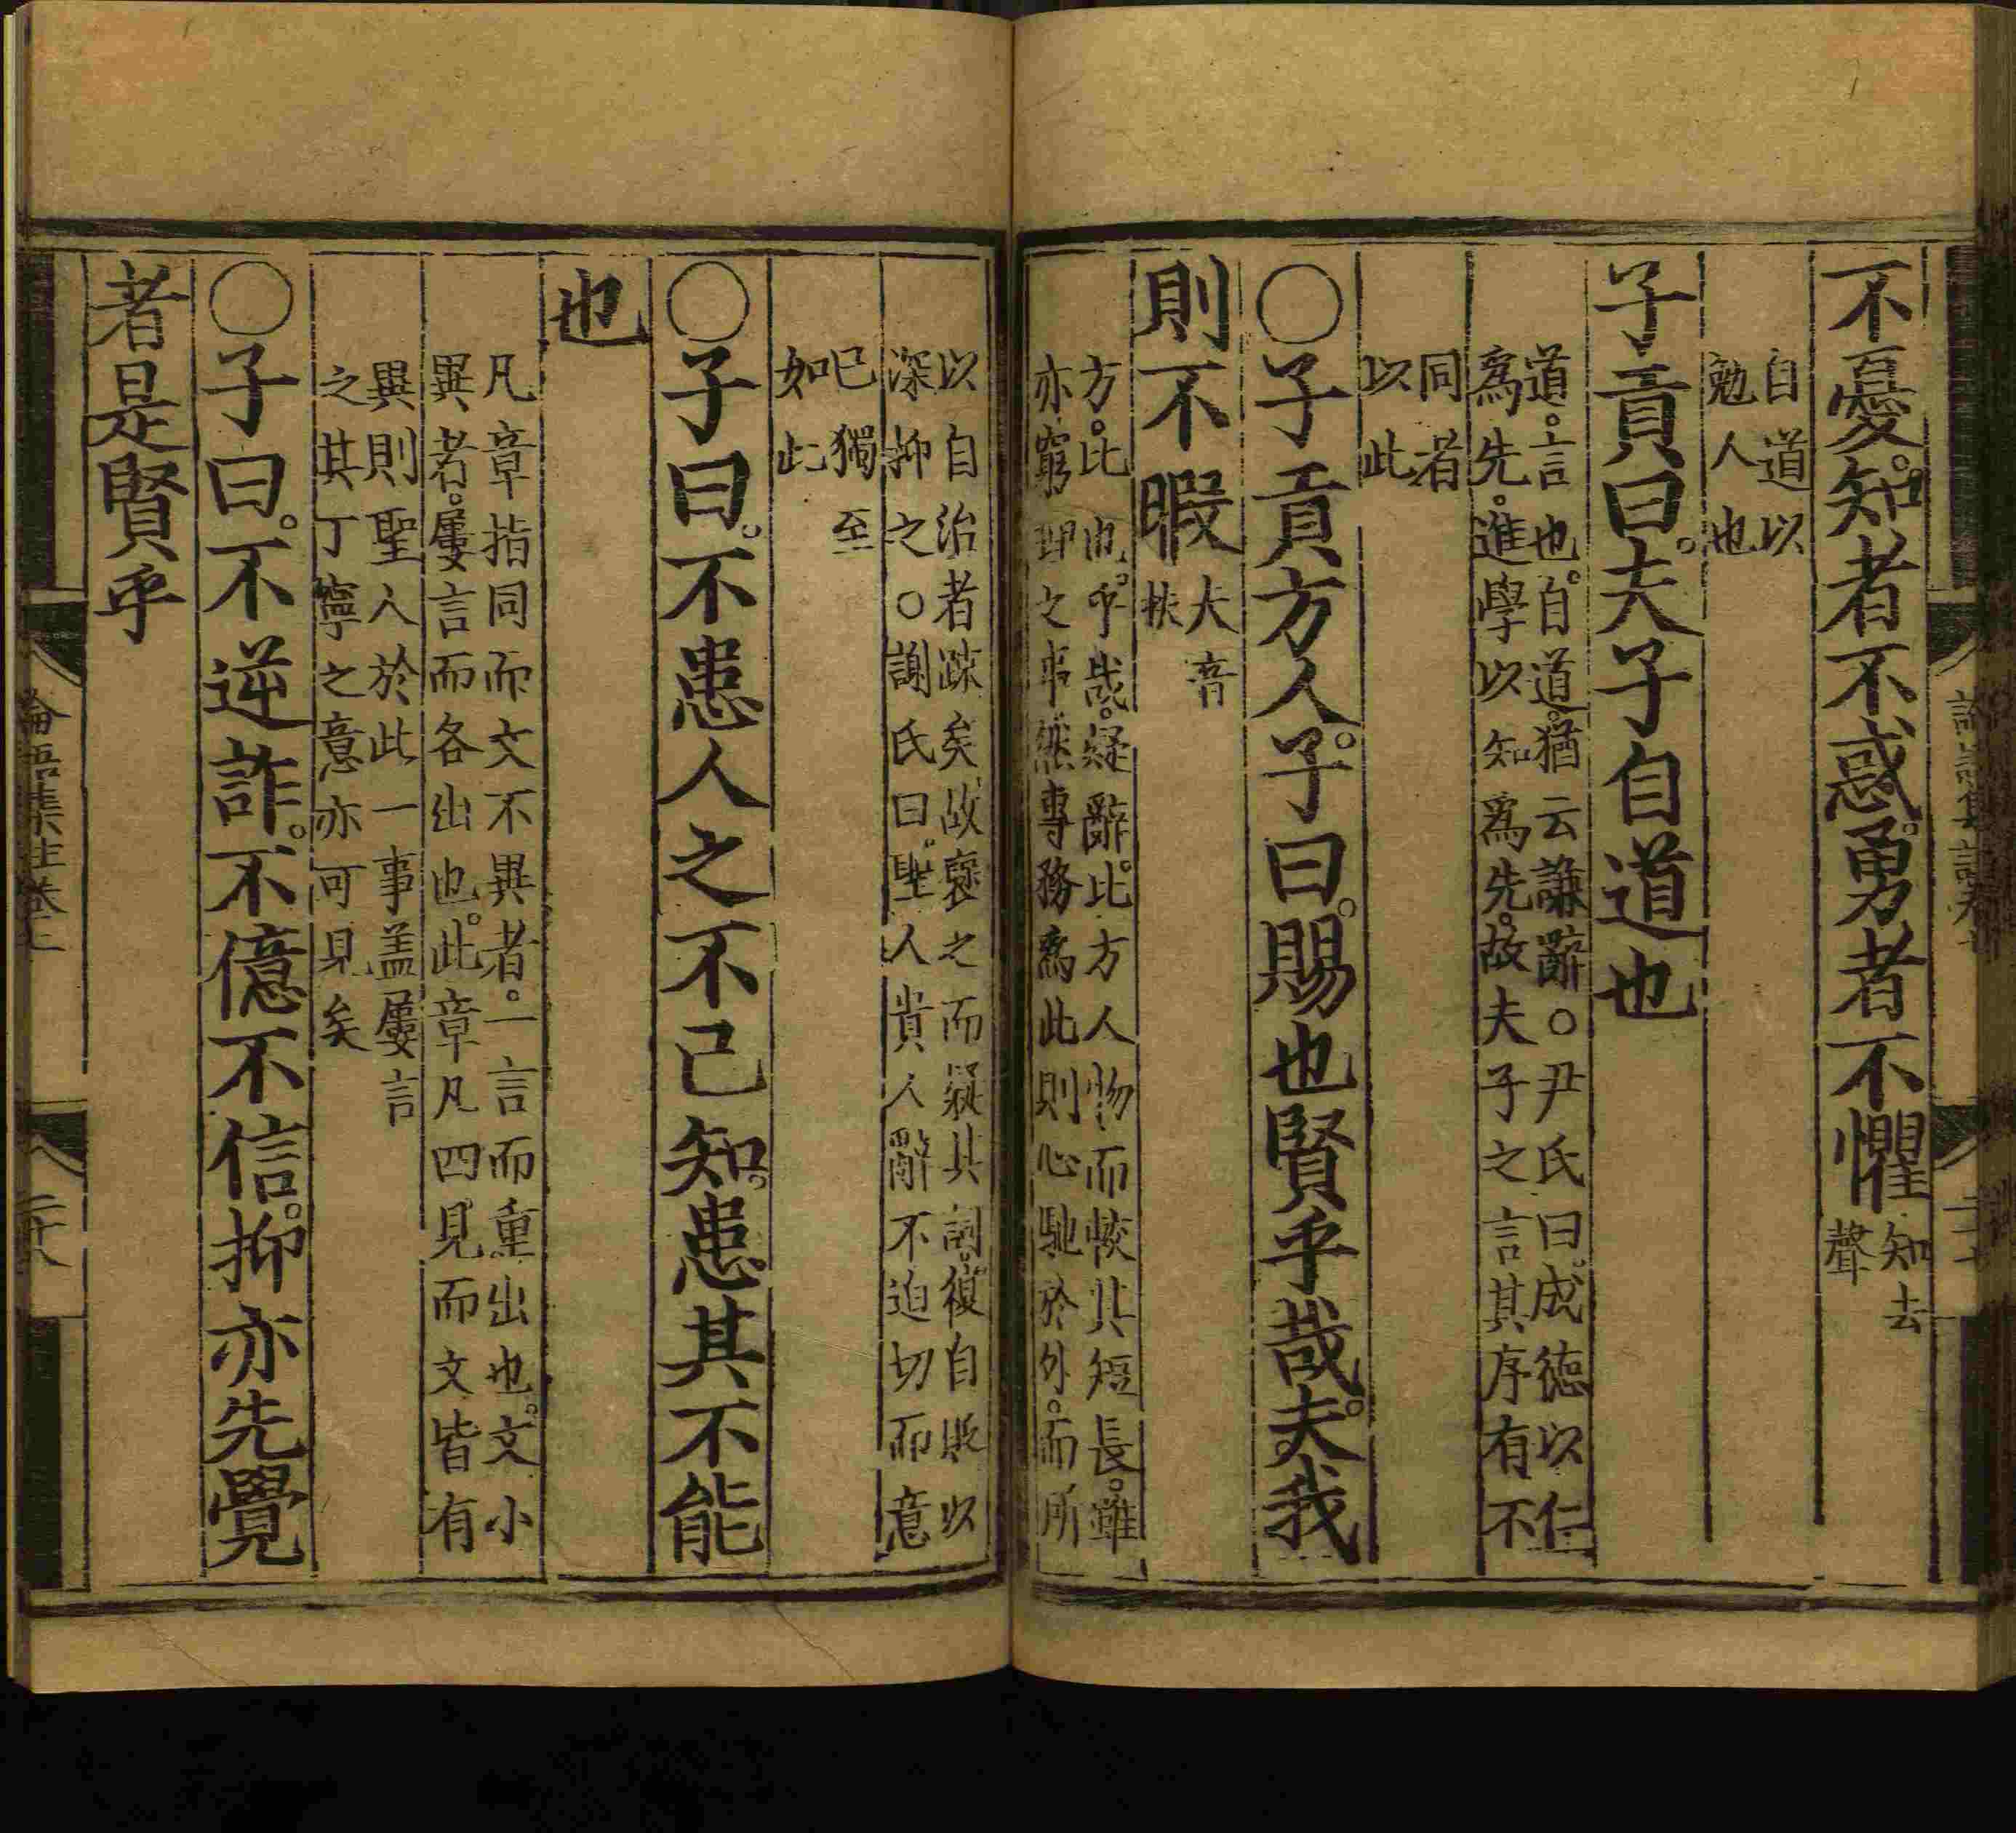 不憂。知者不惑。勇者不懼知去
聲
自道以
勉人也
子貢曰。夫子自道也
道。言也。自道。猶云謙辭。○尹氏曰。成德以仁
為先。進學以知為先。故夫子之言其序有不
同者
以此
○子貢方人。子曰。賜也賢乎哉。夫我
則不暇夫音
扶
方。比也。乎哉。疑辭。比方人物而較其短長。雖
亦窮理之事。然專務為此則心馳於外。而所
以自治者疎矣故褒之而疑其詞。復自貶以
深抑之。○謝氏曰。聖人責人辭不迫切而意
已獨至
如此
○子曰。不患人之不己知。患其不能
也
凡章指同而文不異者。一言而重出也。文小
異者。屢言而各出也。此章凡四見而文皆有
異則聖人於此一事盖屢言
之其丁寧之意亦可見矣
○子曰。不逆詐。不億不信。抑亦先覺
者是賢乎
論語集註卷七
二十八